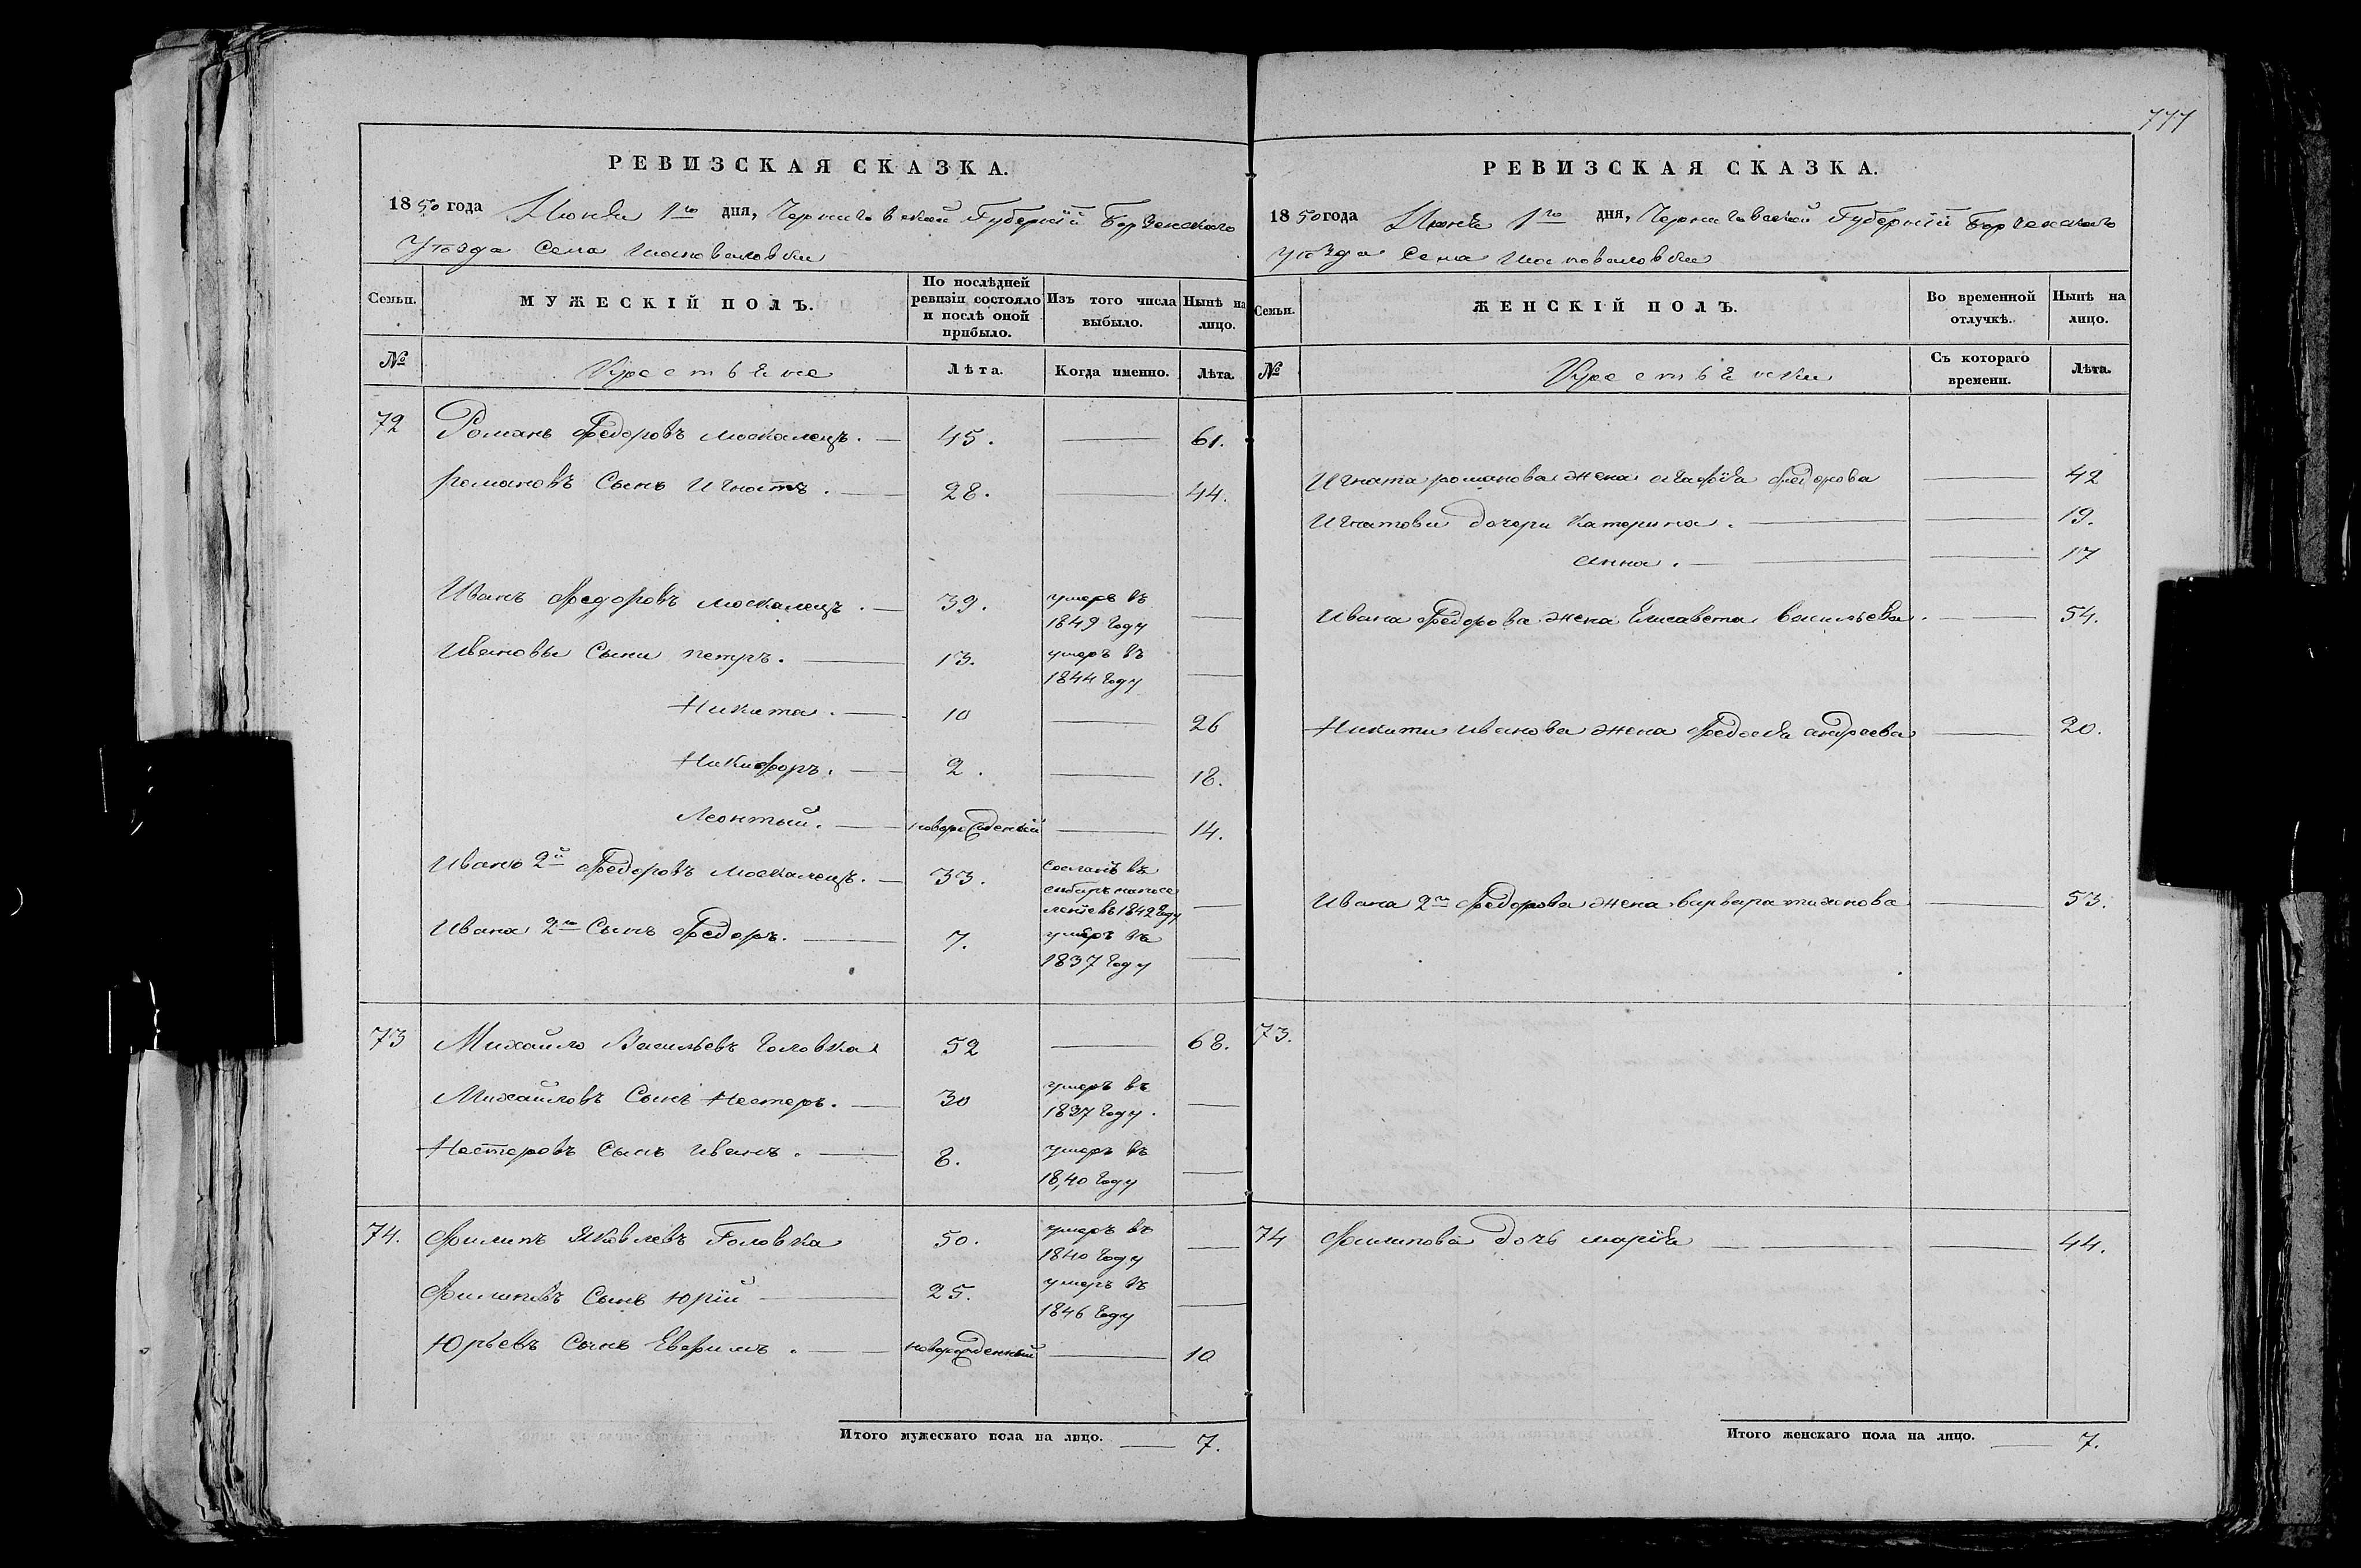 777
РЕВИЗСКАЯ СКАЗКА.
1850 года Июня 1го дня, Черниговской Губерніи Борзенскаго
Уѣзда Села Шаповаловки
Семьи. МУЖЕСКІЙ ПОЛЪ. По послѣдней ревизіи состояло и послѣ оной прибыло. Изъ того числа выбыло. Нынѣ на лицо.
№ Крестьяне Лѣта. Когда именно. Лѣта.
72 Романъ Федоровъ Москалецъ. — 45. — 61.
романовъ Сынъ Игнатъ. — 28. — 44.
Иванъ Федоровъ москалецъ. — 39. умеръ въ 1849 году —
Ивановы Сыни петръ. — 13. умеръ въ 1844 году —
Никита. — 10 — 26
Никифоръ. — 2. — 18.
Леонтый. — новорожденый — 14.
Иванъ 2й Федоровъ Москалецъ. — 33. Сосланъ въ сибирь напосе ленiе въ 1842 году —
Ивана 2го Сынъ Федоръ. — 7. умеръ въ 1837 году —
73 Михайло Васильевъ Головка 52 — 68.
Михайловъ Сынъ Нестеръ. — 30 умеръ въ 1837 году. —
Нестеровъ Сынъ иванъ. — 8. умеръ въ 1840 году —
74. Филипъ Яковлевъ Головка 50. умеръ въ 1840 году —
Филиповъ Сынъ Юрій — 25. умеръ въ 1846 году —
Юрьевъ Сынъ Евфимъ. — новорожденный — 10
Итого мужескаго пола на лицо. — 7.
РЕВИЗСКАЯ СКАЗКА.
1850 года Июня 1го дня, Черниговской Губерніи Борзенскаго
уѣзда Села Шаповаловки
Семьи. ЖЕНСКІЙ ПОЛЪ. Во временной отлучкѣ. Нынѣ на лицо.
№ Крестьянки Съ котораго времени. Лѣта.
Игната романова жена агафія федорова — 42
Игнатови дочери Катерина. — — 19.
анна. — — 17
Ивана Федорова жена Елисавета васильева. — 54.
Никити иванова жена Федосія андреева — 20.
Ивана 2го Федорова жена варвара тихонова — 53.
73.
74 Филипова дочь марія — — 44.
Итого женскаго пола на лицо. — 7.